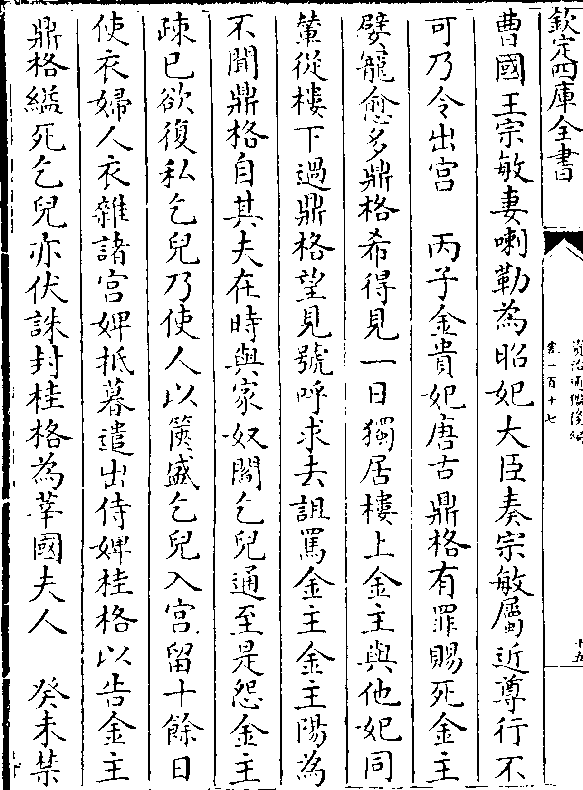 欽定四庫全書
資治通鑑後編
卷一百十七
十五
曹國王宗敏妻喇勒為昭妃大臣奏宗敏屬近尊行不
可乃令出宮　丙子金貴妃唐古鼎格有罪賜死金主
嬖寵愈多鼎格希得見一日獨居樓上金主與他妃同
輦從樓下過鼎格望見號呼求去詛罵金主金主陽為
不聞鼎格自其夫在時與家奴閻乞兒通至是怨金主
疎已欲復私乞兒乃使人以篋盛乞兒入宮留十餘日
使衣婦人衣雜諸宮婢抵暮遣出侍婢桂格以告金主
鼎格縊死乞兒亦伏誅封桂格為莘國夫人　癸未禁